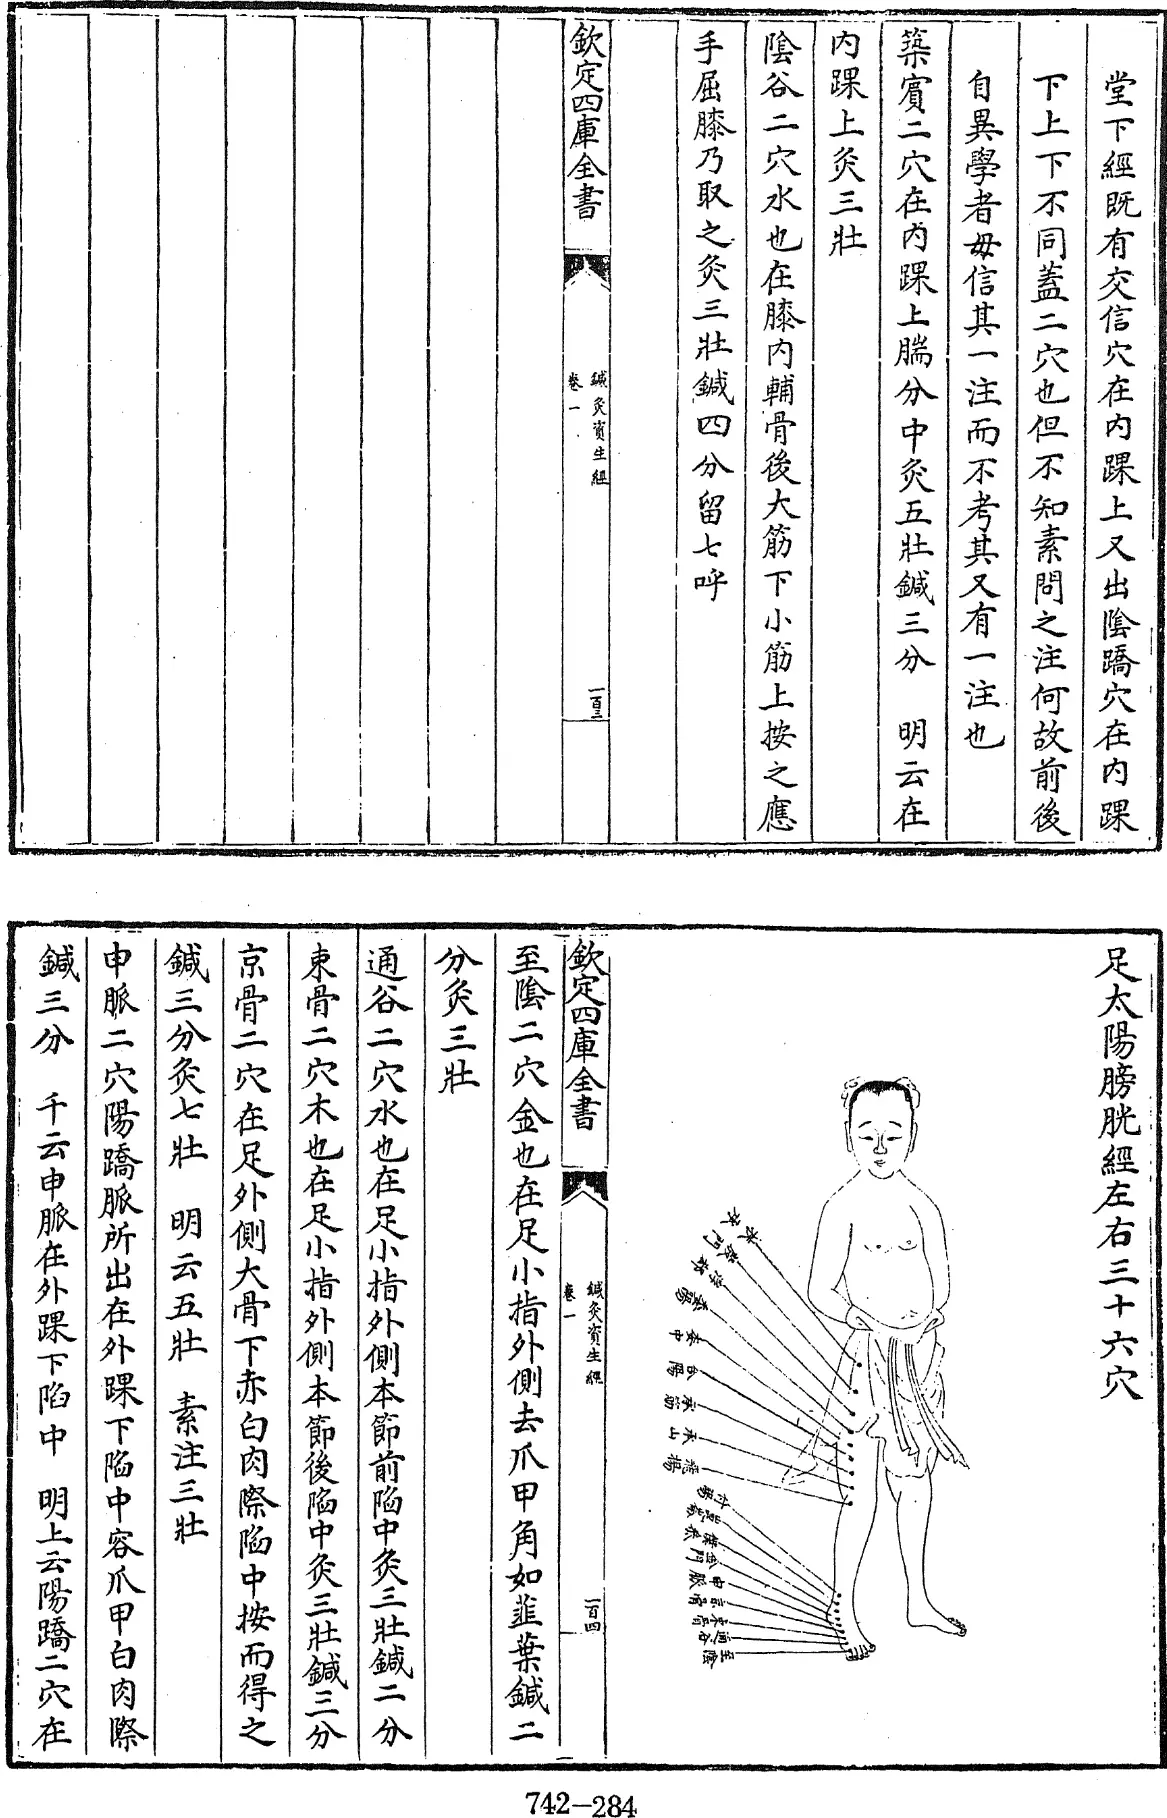 堂下經既有交信穴在内踝上又出陰蹻穴在内踝
下上下不同蓋二穴也但不知素問之注何故前後
自異學者毋信其一注而不考其又有一注也
築賓二穴在内踝上腨分中灸五壯鍼三分　明云在
内踝上灸三壯
陰谷二穴水也在膝内輔骨後大筋下小筋上按之應
手屈膝乃取之灸三壯鍼四分留七呼
欽定四庫全書
鍼灸資生經
卷一
一百三
足太陽膀胱經左右三十六穴
扶承
殷門
浮郄
委陽
委中
合陽
承筋
承山
飛揚
付陽
崑崙
僕參
金門
申脈
京骨
束骨
通谷
至陰
欽定四庫全書
鍼灸資生經
卷一
一百四
至陰二穴金也在足小指外側去爪甲角如韮葉鍼二
分灸三壯
通谷二穴水也在足小指外側本節前陷中灸三壯鍼二分
束骨二穴木也在足小指外側本節後陷中灸三壯鍼三分
京骨二穴在足外側大骨下赤白肉際陷中按而得之
鍼三分灸七壯　明云五壯　素注三壯
申脈二穴陽蹻脈所出在外踝下陷中容爪甲白肉際
鍼三分　千云申脈在外踝下陷中　明上云陽蹻二穴在
742-284